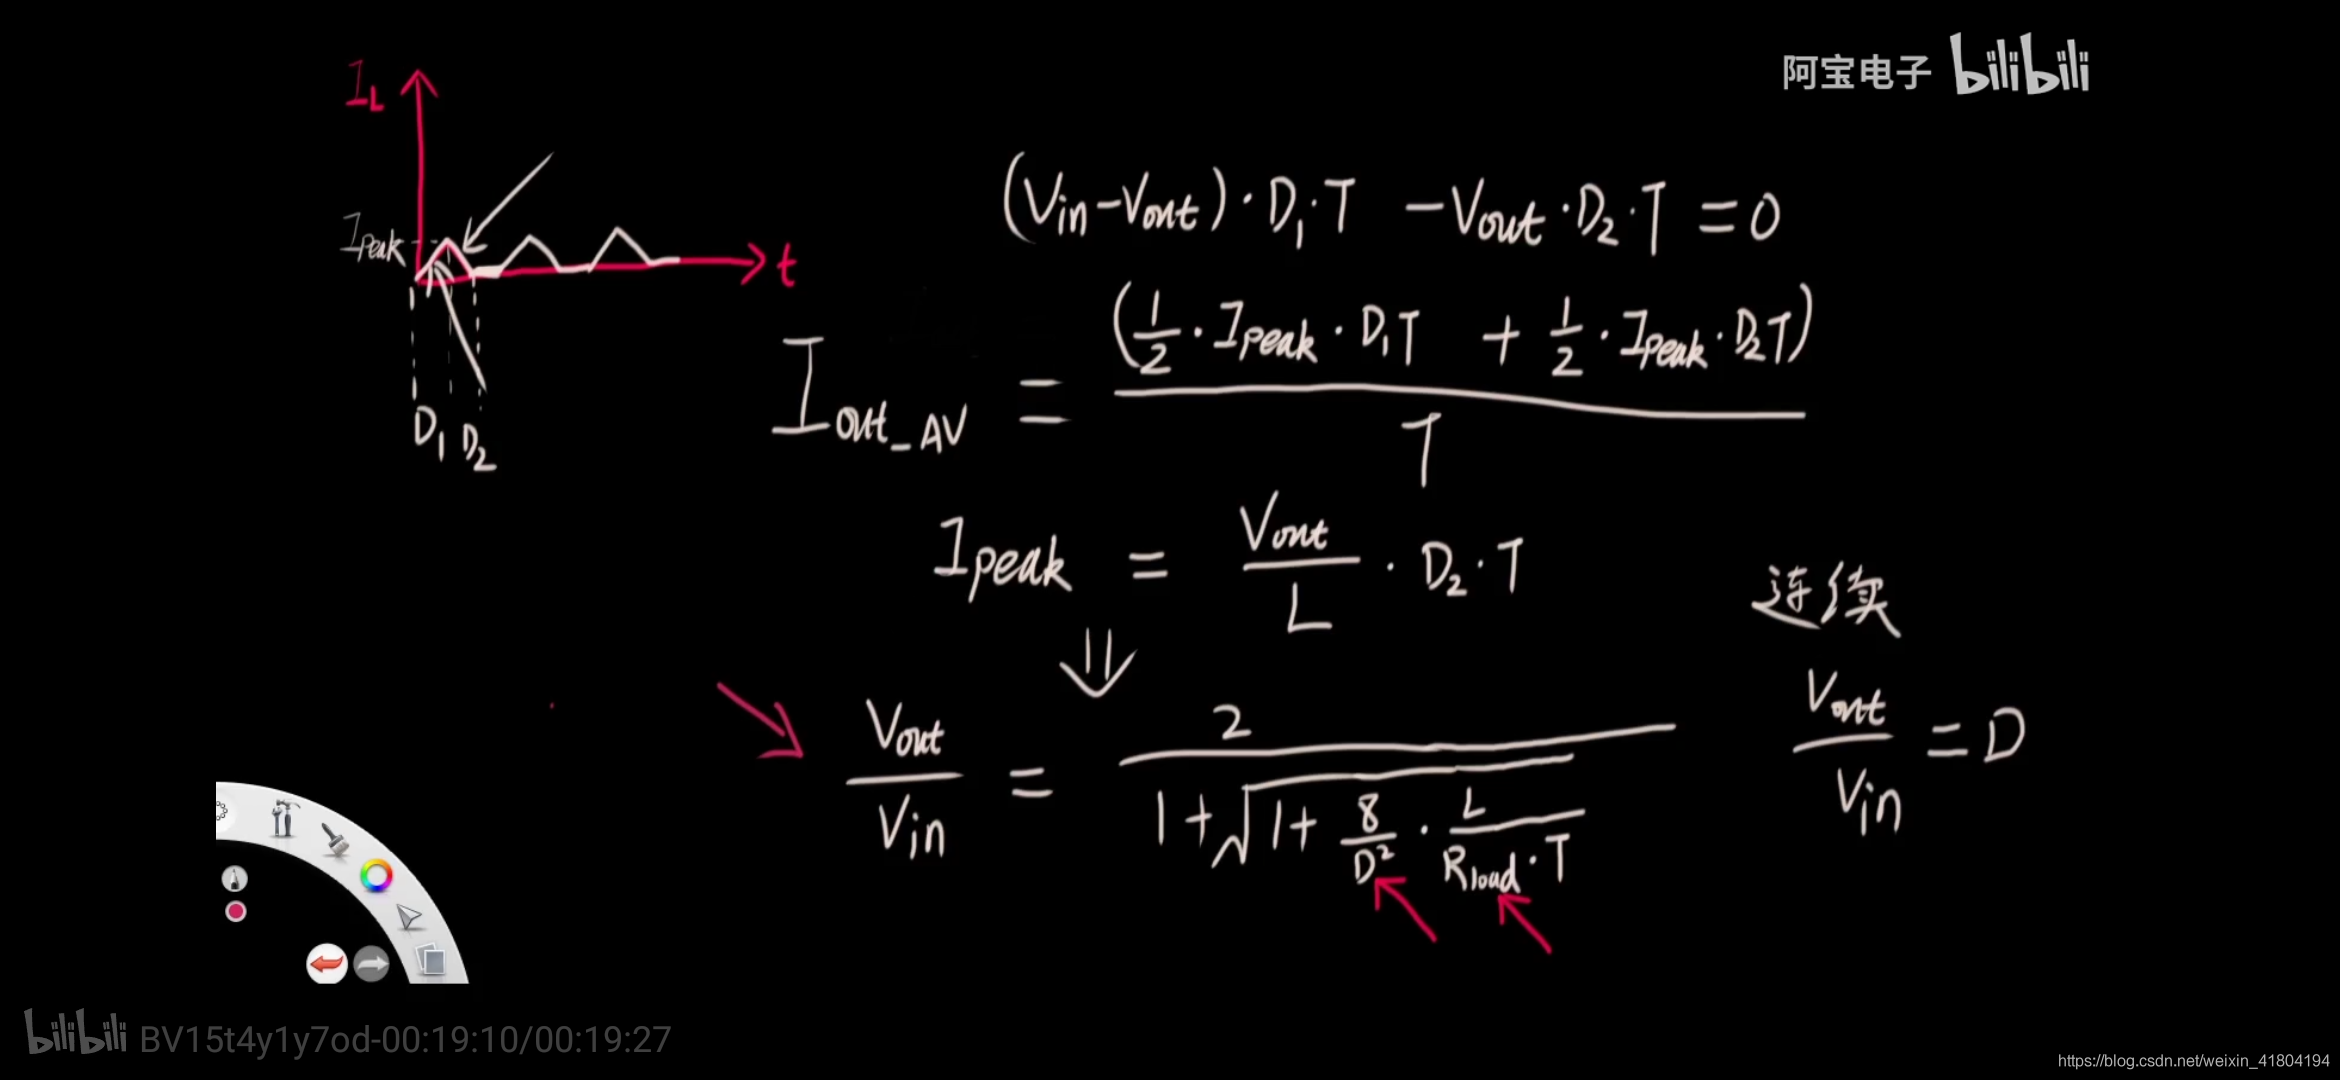 阿宝电子 bilibili
I_L
(Vin-Vout)·D₁·T -Vout·D₂·T =0
Ipeak
t
Iout_AV = (1/2·Ipeak·D₁T + 1/2·Ipeak·D₂T) / T
D₁ D₂
Ipeak = Vout/L · D₂·T
连续
⇓
Vout/Vin = 2 / (1+√(1+ 8/D² · L/(Rload·T)))
Vout/Vin = D
bilibili BV15t4y1y7od-00:19:10/00:19:27
https://blog.csdn.net/weixin_41804194